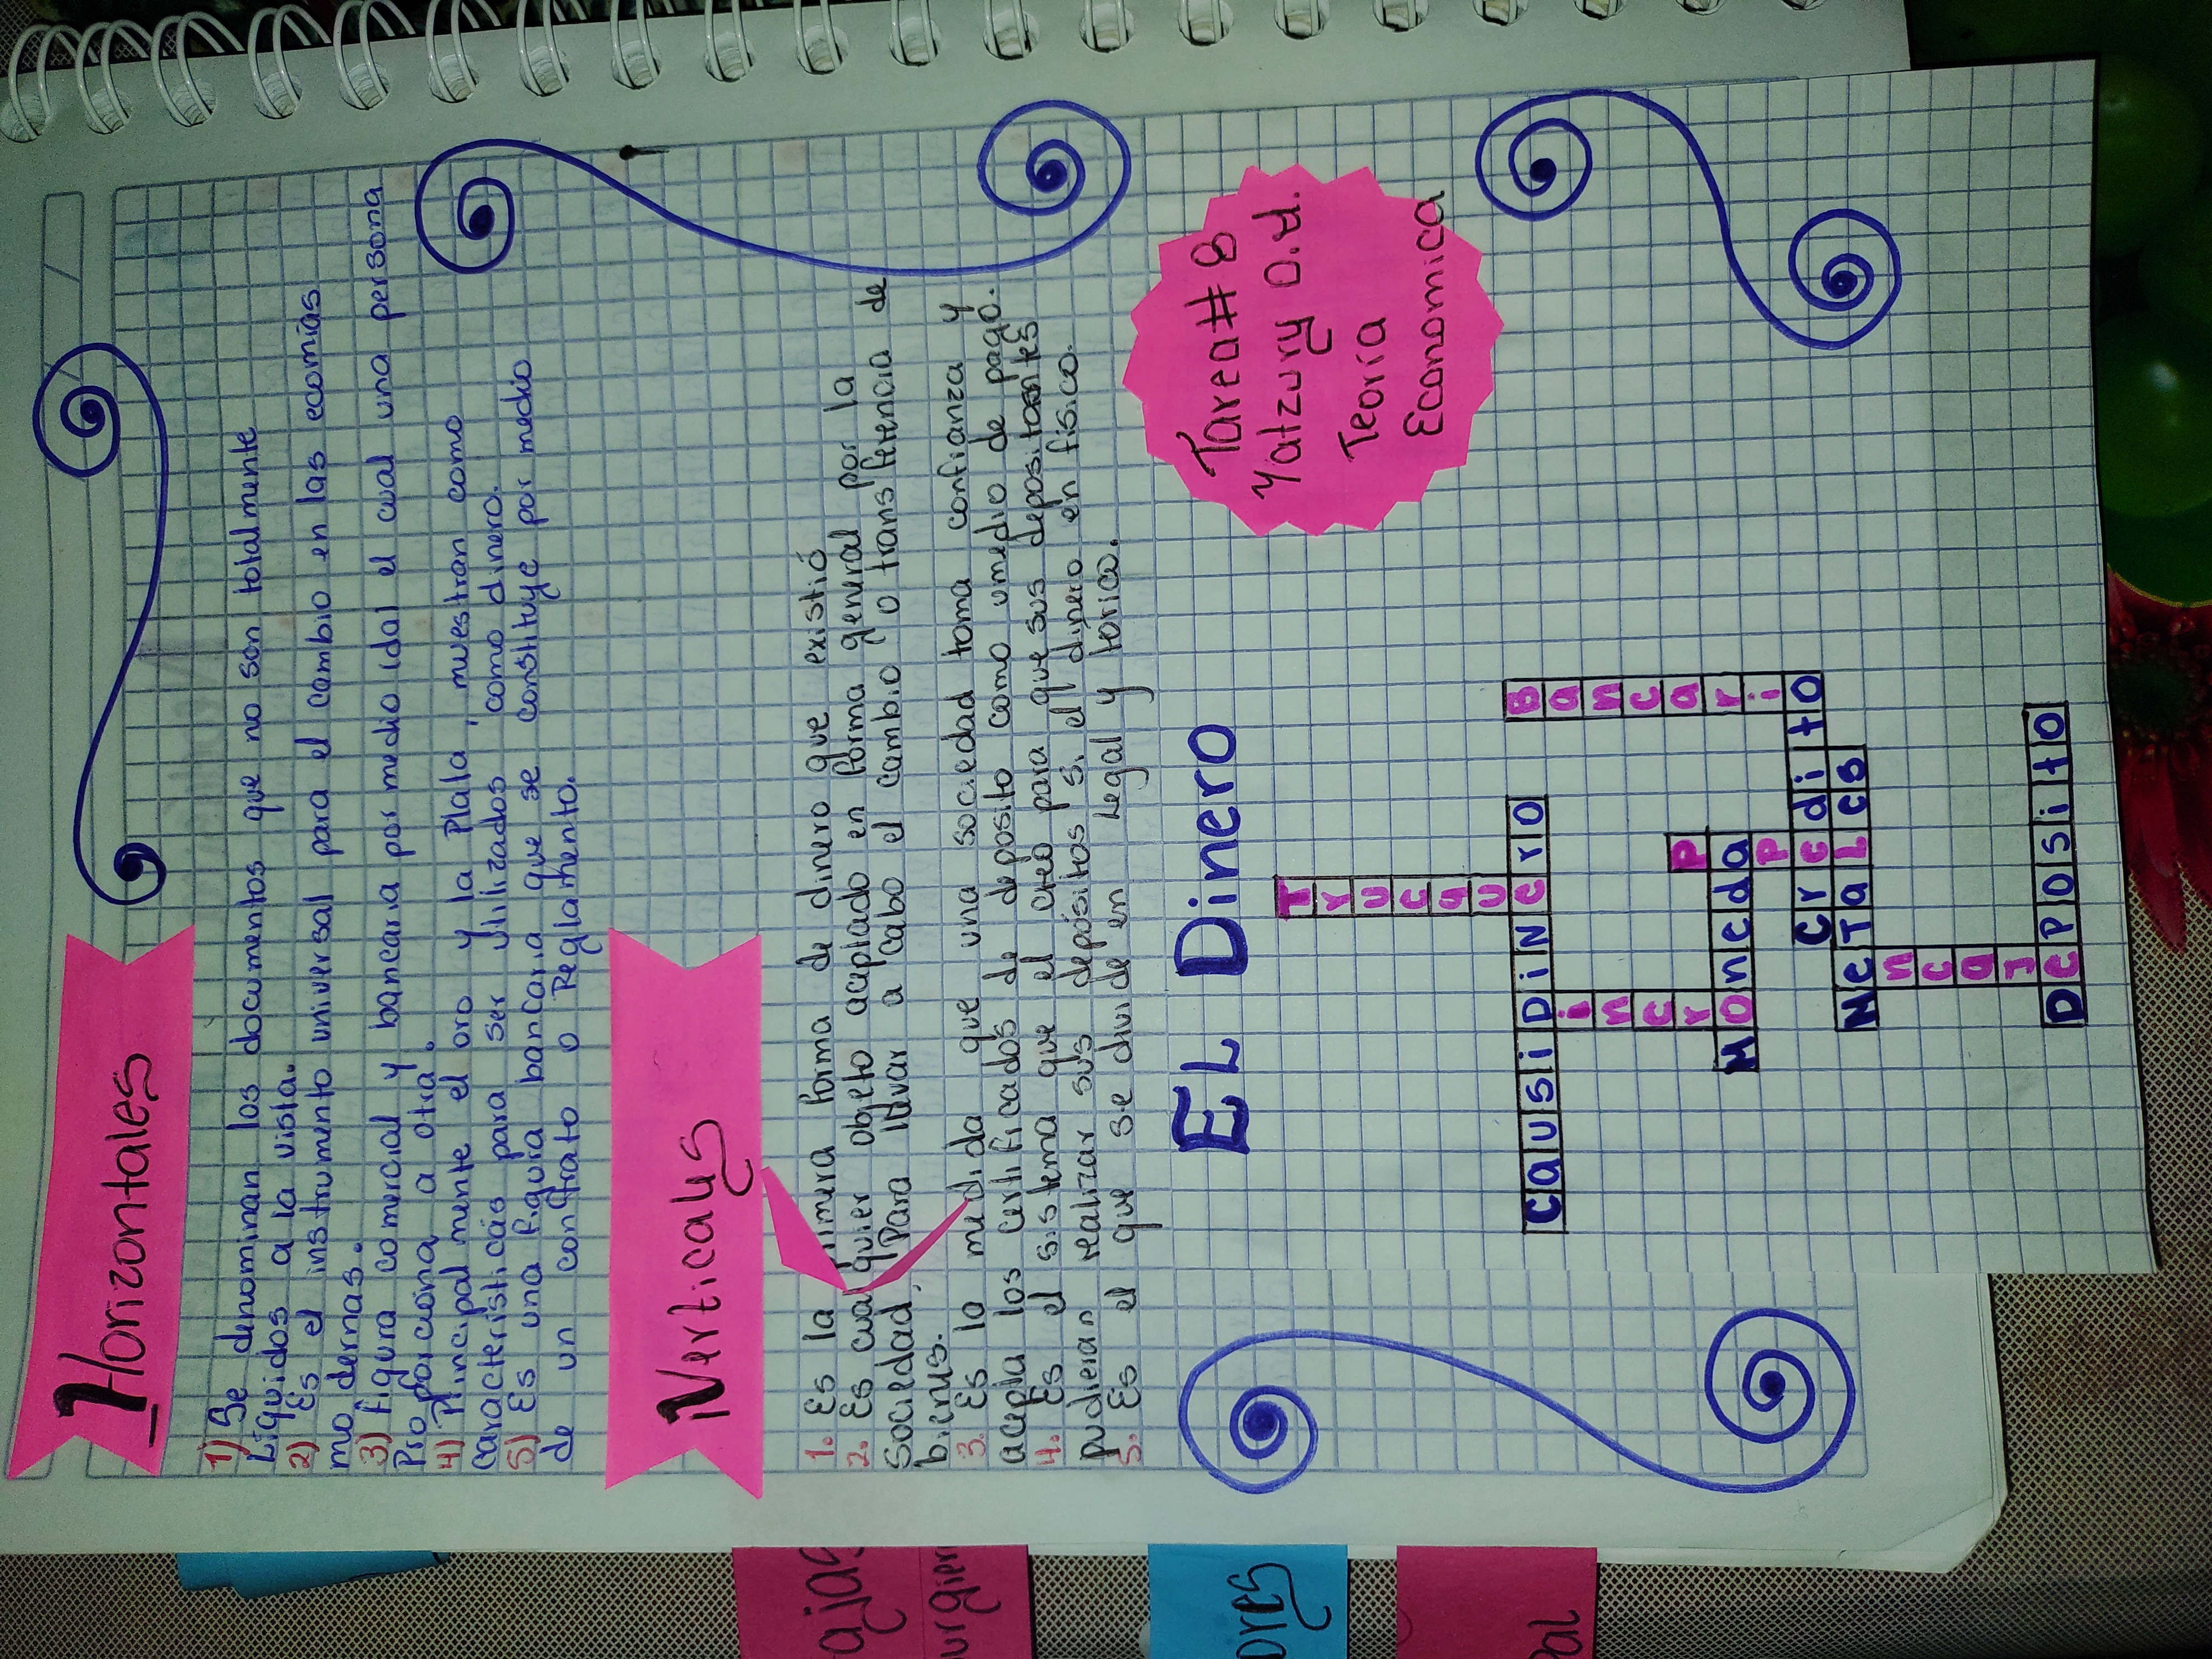 Horizontales
1) Se denominan los documentos que no son totalmente
Liquidos a la vista.
2) Es el instrumento universal para el cambio en las ecomías
modernas.
3) figura comercial y bancaria por medio idal el cual una persona
Proporciona a otra.
4) Principalmente el oro y la Plata, muestran como
caracteristicas para ser utilizados como dinero.
5) Es una figura bancaria que se constituye por medio
de un contrato o Reglamento.
Verticales
1. Es la primera forma de dinero que existió
2. Es cualquier objeto aceptado en forma general por la
sociedad, Para llevar a cabo el cambio o transferencia de
bienes.
3. Es la medida que una sociedad toma confianza y
acepta los certificados de deposito como umedio de pago.
4. Es el sistema que el creó para que sus depositantes
pudieran realizar sus depósitos si el dinero en fisico.
5. Es el que se divide en Legal y torica.
Tarea # 8
Yatzury O.H.
Teoría
Economica
EL Dinero
Trucque
CausiDiNero
Dinero
Bancario
Moneda
PaPel
Credito
MeTaLes
encaje
DePosito
ajas
urgien
ores
pal